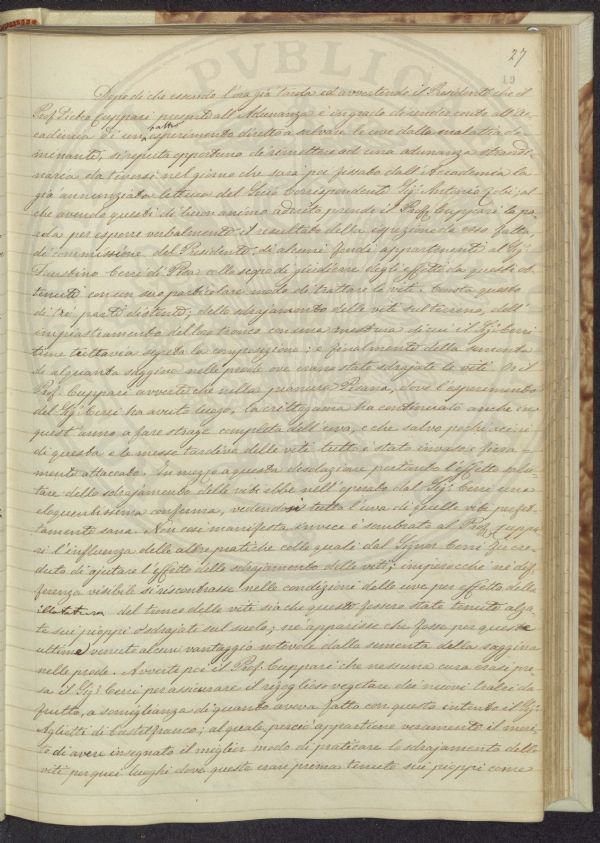 27
19
PVBLICA
Dopo di che essendo l'ora già tarda ed avvertendo il Presidente che il
Prof. Pietro Cuppari presente all'Adunanza è in grado di render conto all'Ac-
cademia di un fatto esperimento diretto a salvare le uve dalla malattia do-
minante, si reputa opportuno di rimettere ad una adunanza straordi-
naria da tenersi nel giorno che sarà poi fissato dall'Accademia la
già annunziata lettura del Socio Corrispondente Sig. Antonio Zobi; al
che avendo questi di buon animo aderito prende il Prof. Cuppari la pa-
rola per esporre verbalmente il resultato della ispezione da esso fatta
di commissione del Presidente di alcuni fondi appartenenti al Sig.
Cerri di Pisa collo scopo di giudicare degli effetti da questi ot-
tenuti con un suo particolare modo di trattare le viti. Consta questo
di tre parti distinte; dello sdrajamento delle viti sul terreno, dell'
impiastramento del loro tronco con una mestura di cui il Sig. Cerri
tiene tuttavia segreta la composizione; e finalmente della sementa
di alquanta saggina nelle prode ove erano state sdrajate le viti. Or il
Prof. Cuppari avverte che nella pianura Pisana, dove l'esperimento
del Sig. Cerri ha avuto luogo, la crittogama ha continuato anche in
quest'anno a fare strage completa dell'uva, e che salvo pochi acini
di questa e le messe tardive delle viti tutto è stato invaso e fiera-
mente attaccato. In mezzo a questa desolazione pertanto l'effetto salu-
tare dello sdrajamento delle viti ebbe nell'operato dal Sig. Cerri una
eloquentissima conferma, vedendosi tutta l'uva di quelle viti perfet-
tamente sana. Non così manifesta invece è sembrata al Prof. Cuppa-
ri l'influenza delle altre pratiche colle quali dal Signor Cerri fu cre-
duto di ajutare l'effetto dello sdrajamento delle viti; imperocchè nè dif-
ferenza visibile si riscontrasse nelle condizioni delle uve per effetto della
del tronco delle vite sia che queste fossero state tenute alza-
te sui pioppi o sdrajate sul suolo; nè apparisse che fosse per queste
ultime venuto alcun vantaggio notevole dalla sementa della saggina
nelle prode. Avverte poi il Prof. Cuppari che nessuna cura erasi pre-
sa il Sig. Cerri per assicurare il rigoglioso vegetare dei nuovi tralci da
frutto, a somiglianza di quanto aveva fatto con questo intento il Sig.
Aglietti di Castelfranco; al quale perciò appartiene veramente il meri-
to di avere insegnato il miglior modo di praticare lo sdrajamento delle
viti per quei luoghi dove queste eran prima tenute sui pioppi come